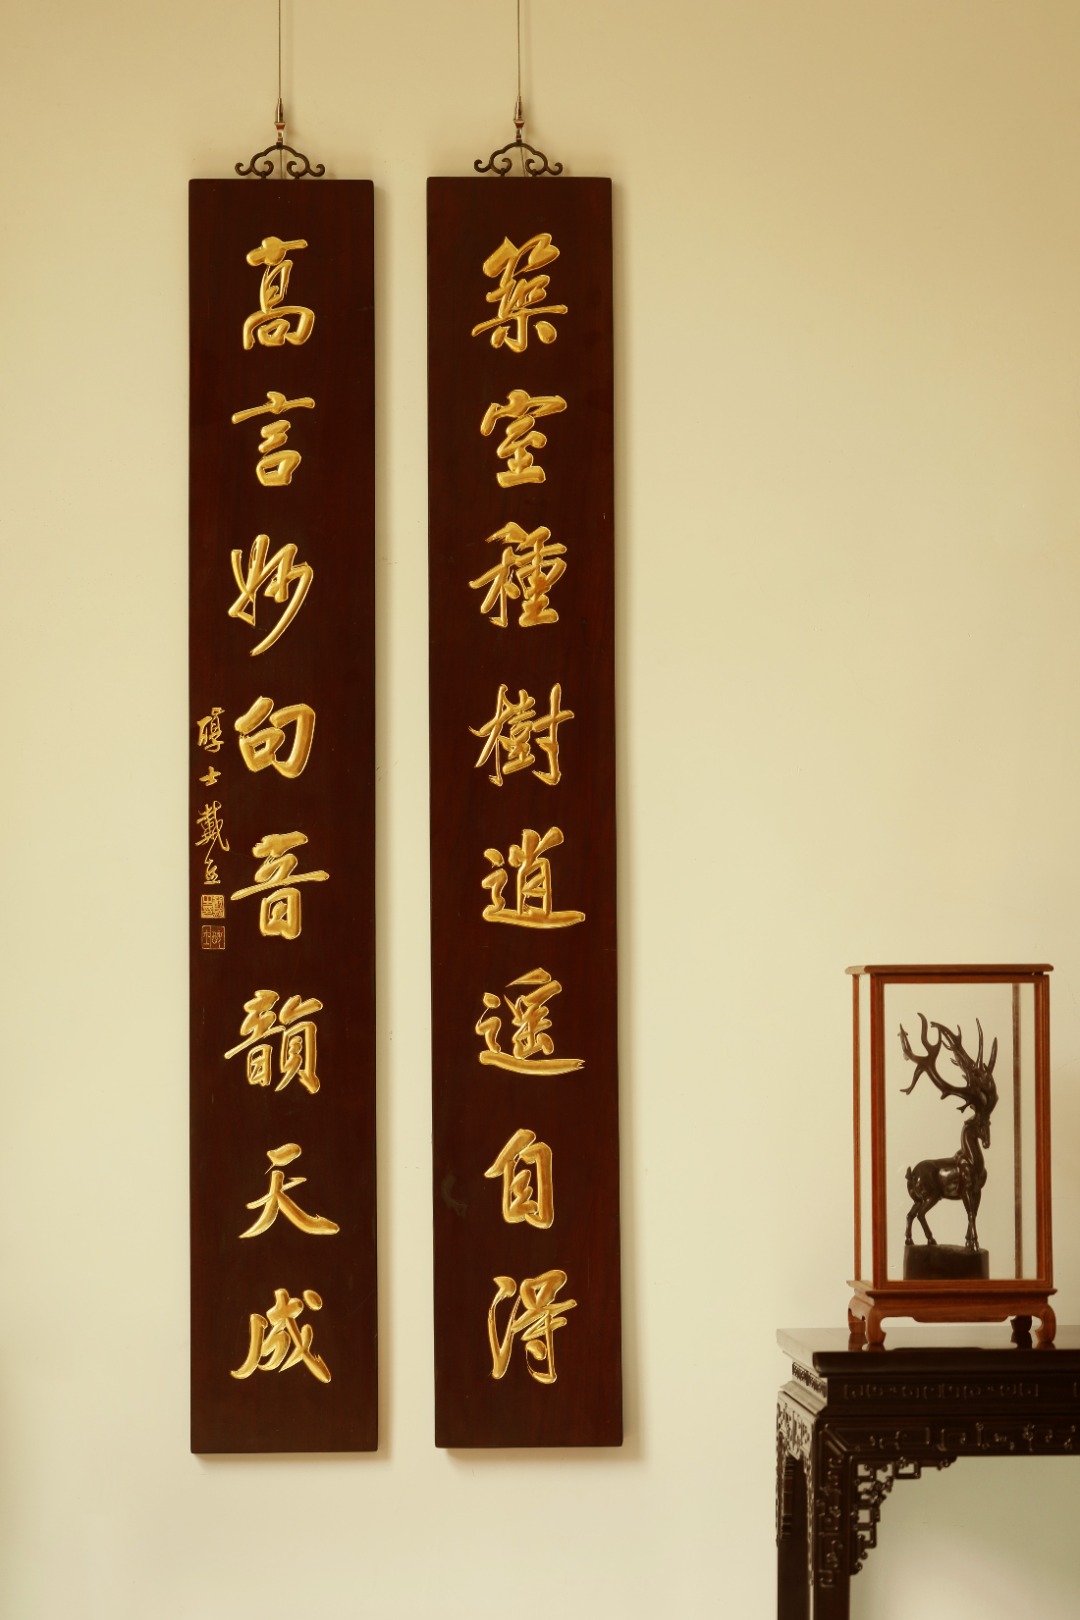 築室種樹逍遥自得
高言妙句音韻天成
醇士戴熙